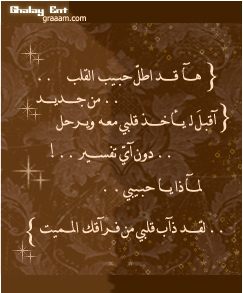 Ghalay Ent
graaam.com
{ هـآ قـد اطلّ حبيب القلب . .
. . من جديد
{ آقبلَ ليـأخـذ قلبي معه ويرحل
. . دون آيّ تفسير . . !
لمـآذا يـا حبيبي . .
. . لقـد ذآب قلبي من فـرآقك المـميت }